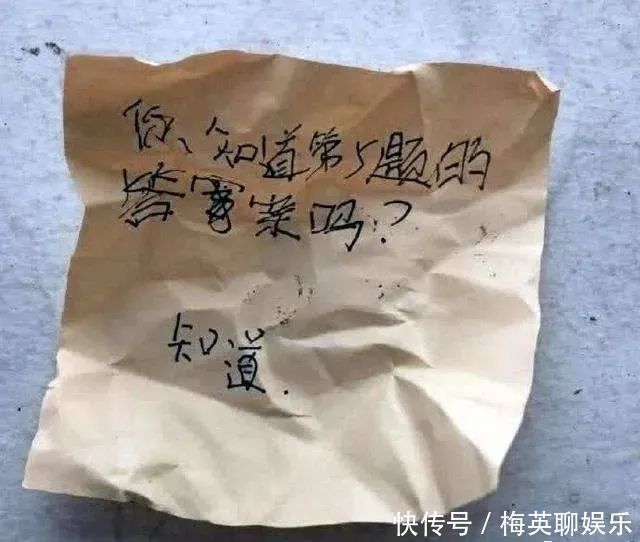 你知道第5题的
答案案吗?
知道.
快传号/梅英聊娱乐